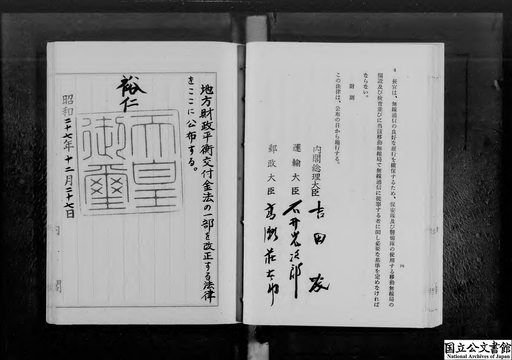 長官は、無線通信の良好な運行を確保するため、保安隊及び警備隊の使用する移動無線局の
開設及び検査並びに当該移動無線局で無線通信に従事する者に関し必要な基準を定めなければ
ならない。
附則
この法律は、公布の日から施行する。
内閣総理大臣 吉田茂
運輸大臣 石井光次郎
郵政大臣 高瀬荘太郎
地方財政平衡交付金法の一部を改正する法律
をここに公布する。
裕仁
天皇御璽
昭和二十七年十二月二十七日
国立公文書館
National Archives of Japan